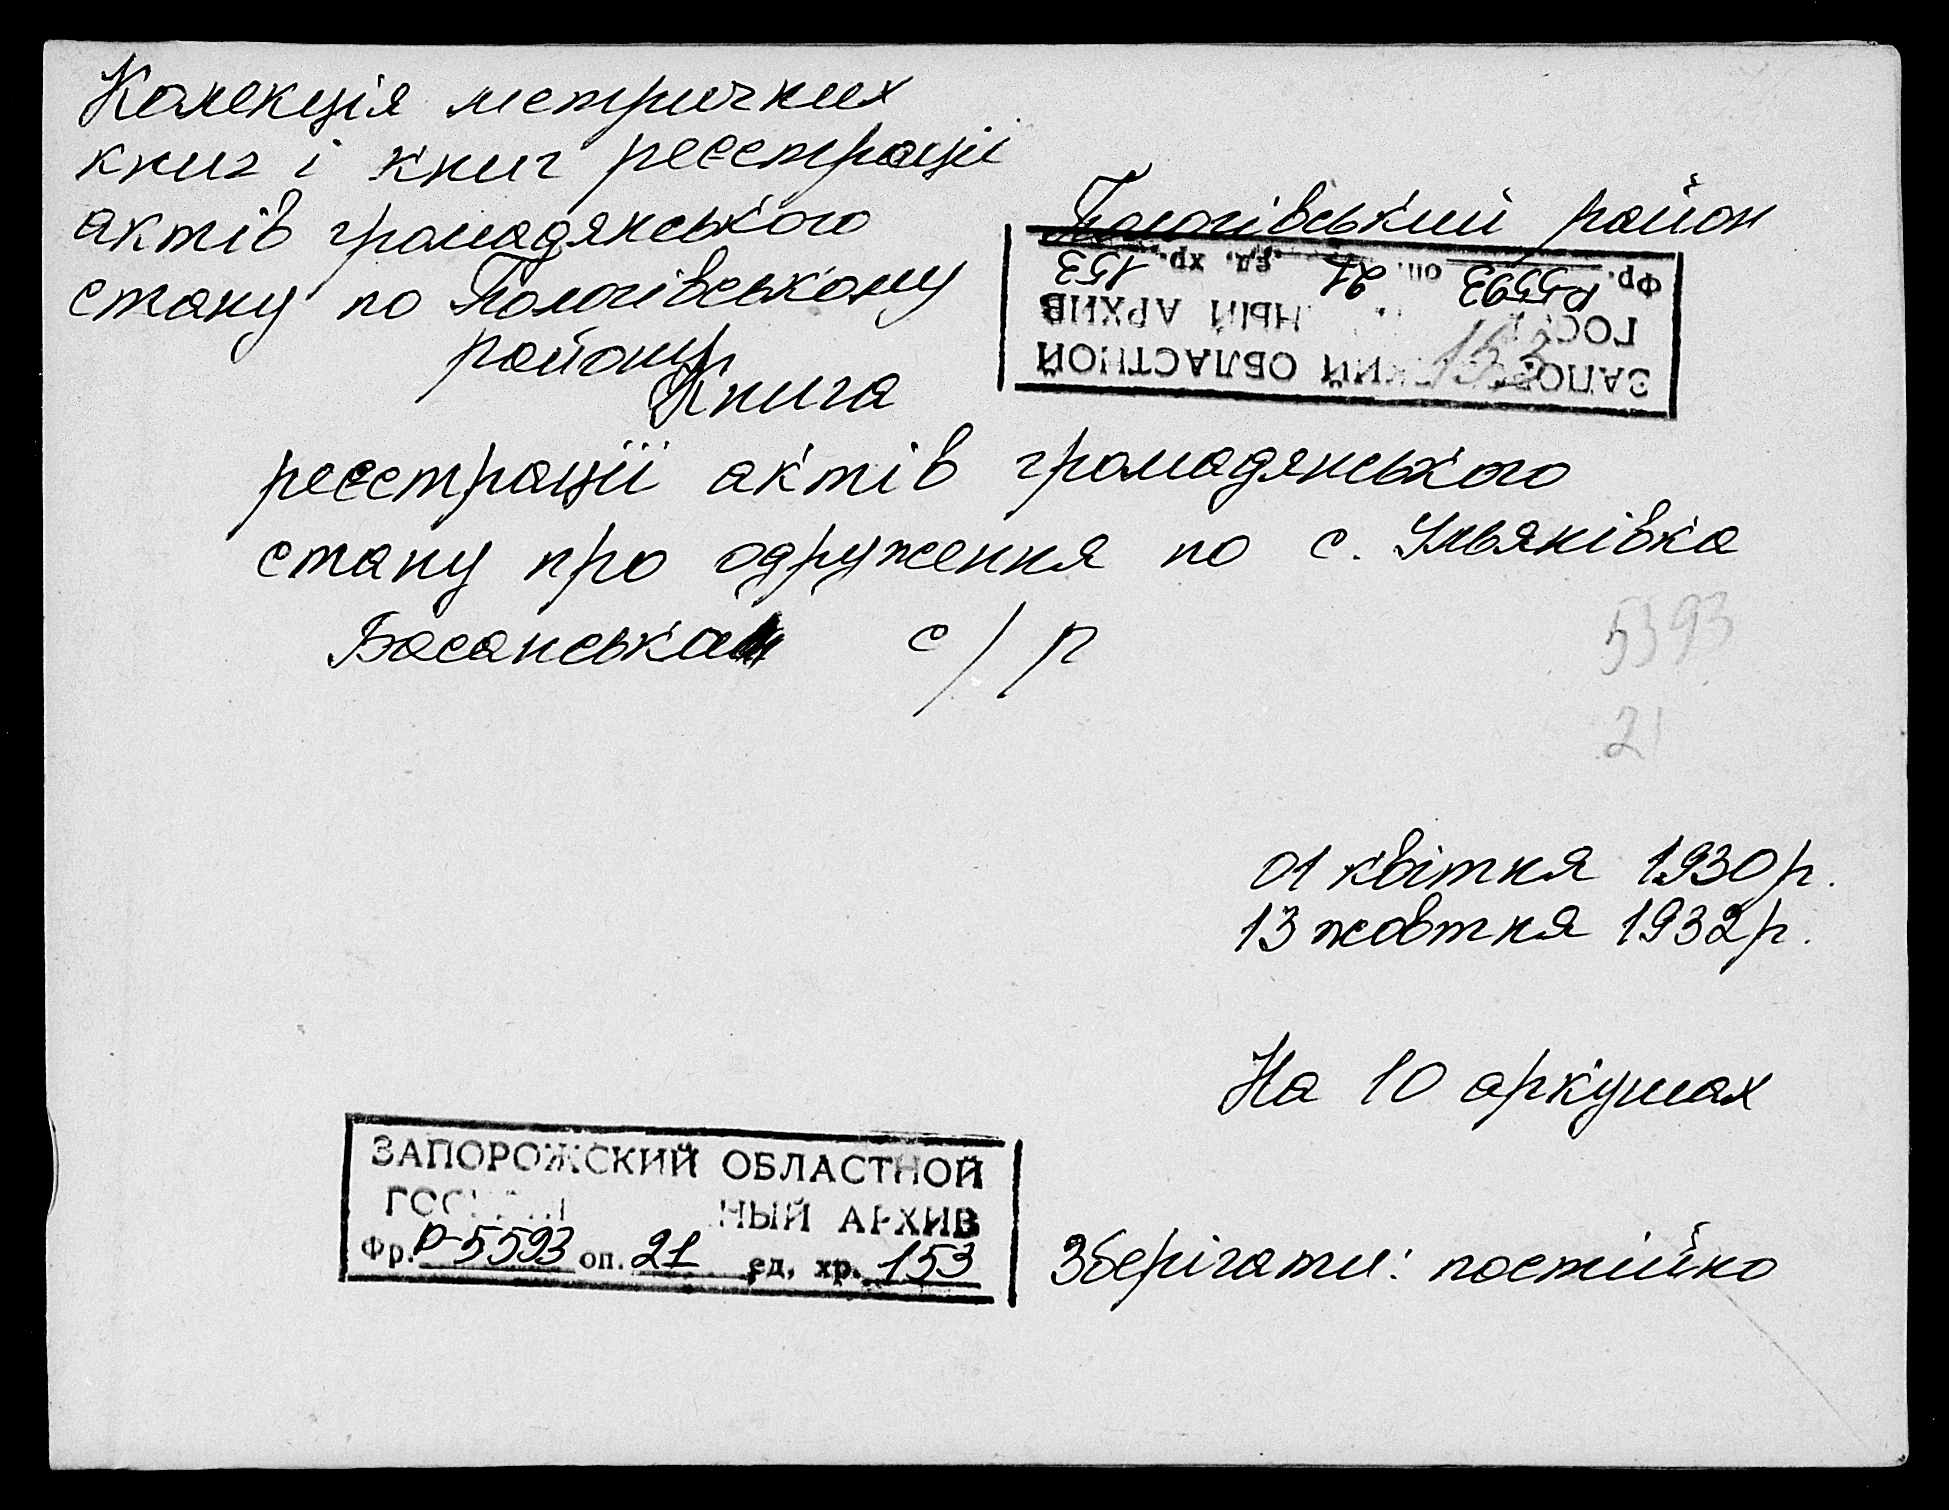 Колекція метричних
книг і книг реєстрації
актів громадянського
стану по Пологівському
району
Пологівський район
Фр. Р-5593 оп. 21 ед. хр. 153
НЫЙ АРХИВ
ОБЛАСТНОЙ
153
Книга
реєстрації актів громадянського
стану про одруження по с. Ульянівка
Басанська с/р
5393
21
01 квітня 1930р.
13 жовтня 1932р.
На 10 аркушах
ЗАПОРОЖСКИЙ ОБЛАСТНОЙ
НЫЙ АРХИВ
Фр. Р-5593 оп. 21 ед. хр. 153
Зберігати: постійно